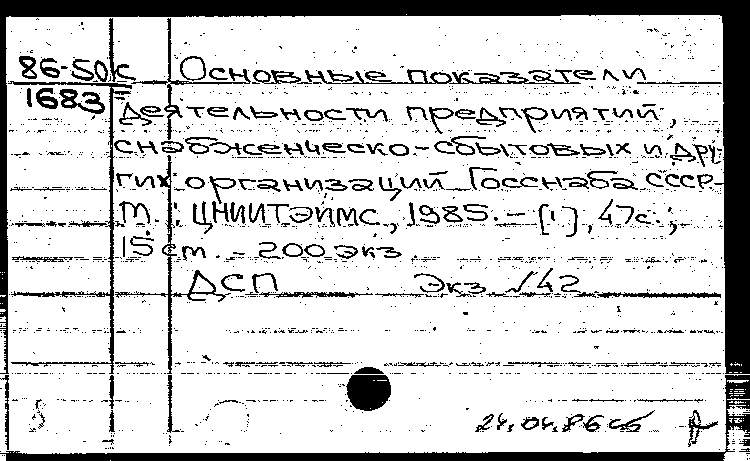 86-50к Основные показатели
1683 деятельности предприятий,
снабженческо-сбытовых и дру-
гих организаций Госснаба СССР.-
М.: ЦНИИТЭИМС, 1985. - [1], 47с.;
15 см. - 200 экз.
ДСП Экз. №42
24.04.86